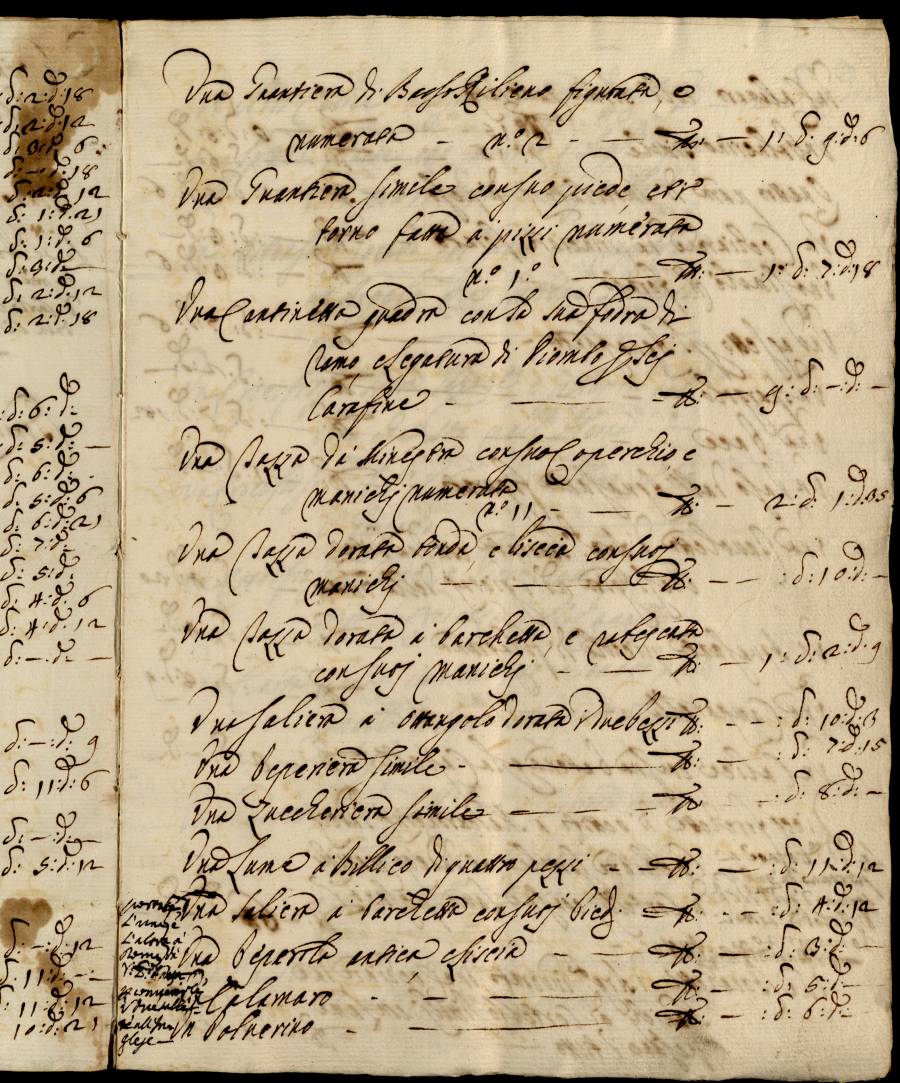 δ: 2: δ: 18
δ: 2: δ: 12
δ: 3: δ: 6
δ: –: δ: 18
δ: 2: δ: 12
δ: 1: δ: 21
δ: 1: δ: 6
δ: 3: δ: —
δ: 2: δ: 12
δ: 2: δ: 18
δ: 6: δ: –
δ: 5: δ: —
δ: 6: δ: –
δ: 5: δ: 6
δ: 6: δ: 21
δ: 7: δ: –
δ: 5: δ:
δ: 4: δ: 6
δ: 4: δ: 12
δ: –: δ: —
δ: –: δ: 9
δ: 11: δ: 6
δ: –: δ: —
δ: 5: δ: 12
δ: –: δ: 12
δ: 11: δ: –
δ: 11: δ: 12
10: δ: 21
Una Guantiera di Basso Rilievo figurata, e
numerata – n.º 2 – – — lb: — 1: δ: 9: δ: 6
Una Guantiera simile con suo piede, e
torno fatta a pizzi numerata
n.º 1.º — lb: — 1: δ: 7: δ: 18
Una Cantinetta quadra con la sua fodra di
ramo, e legatura di Piombo sej
Carafine – — — lb: — 9: δ: –: δ: –
Una Tazza da Minestra con suo Coperchio, e
manichj numerata
n.º 11 – — lb: — 2: δ: 1: δ: 35
Una Tazza dorata tonda, e liscia con suoj
manichj — — lb: — – : δ: 10: δ: –
Una Tazza dorata a barchetta, e
con suoj manichj – — lb: — 1: δ: 2: δ: 9
Una Saliera a ottangolo dorata due pezzi lb: – – : δ: 10: δ: 3
Una Peperiera simile – — lb: — : δ: 7: δ: 15
Una Zuccheriera simile — — — lb: – : δ: 8: δ: –
Una Lume a Billico di quattro pezzi – lb: — : δ: 11: δ: 12
Una Saliera a barchetta con suoj piedj lb: – – : δ: 4: δ: 12
Una Peperola antica e liscia — lb: — : δ: 3: δ: —
Calamaro – – — lb: — : δ: 5: δ: –
Un Polverino – — lb: — : δ: 6: δ: –
L'una è
L'altra à